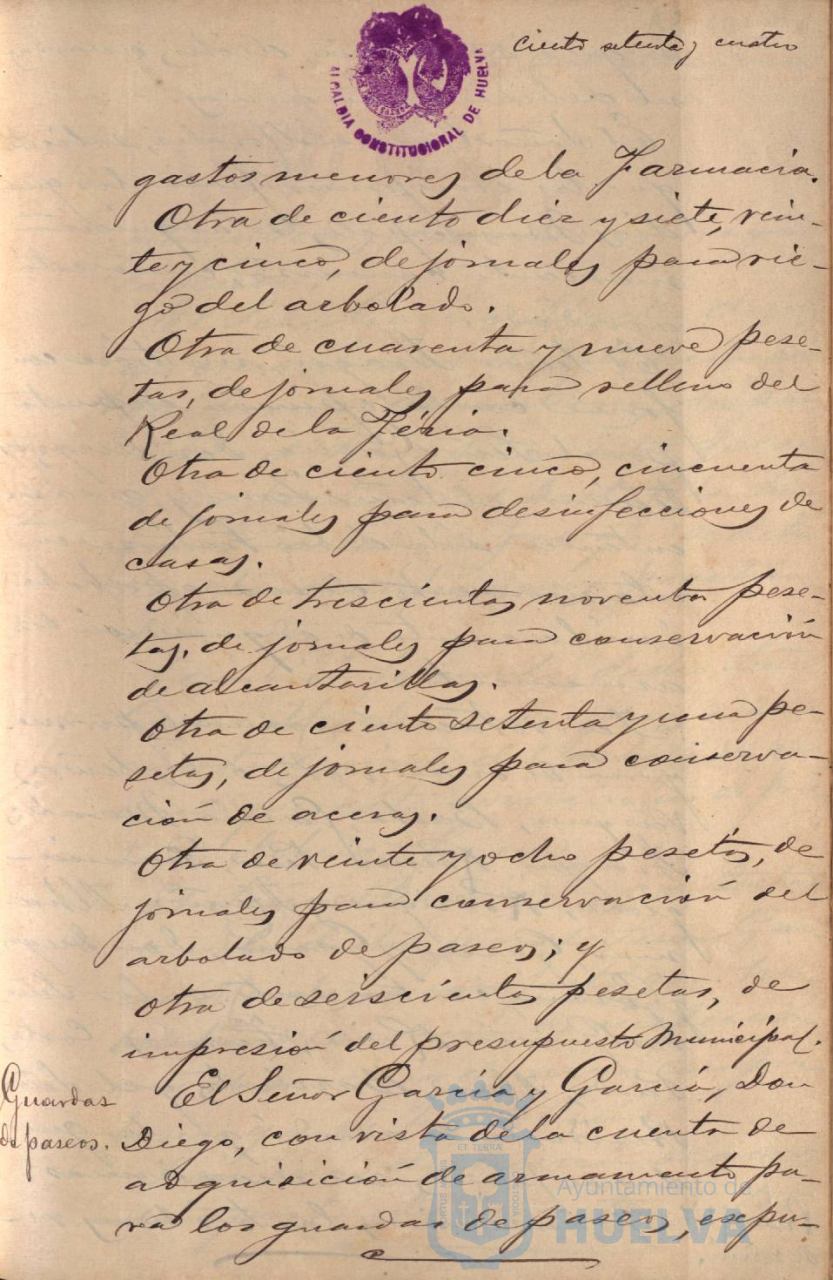 ciento setenta y cuatro
ALCALDIA CONSTITUCIONAL DE HUELVA
gastos menores de la Farmacia.
Otra de ciento diez y siete, vein-
te y cinco, de jornales para rie-
go del arbolado.
Otra de cuarenta y nueve pese-
tas, de jornales para relleno del
Real de la Féria.
Otra de ciento cinco, cincuenta
de jornales para desinfecciones de
casas.
Otra de trescientas noventa pese-
tas, de jornales para conservación
de alcantarillas.
Otra de ciento setenta y una pe-
setas, de jornales para conserva-
ción de aceras.
Otra de veinte y ocho pesetas, de
jornales para conservación del
arbolado de paseos; y
Otra de seiscientas pesetas, de
impresión del presupuesto Municipal.
Guardas
de paseos.
El Señor García y García, Don
Diego, con vista de la cuenta de
adquisición de armamento pa-
ra los guardas de paseos, expu-
Ayuntamiento de
HUELVA